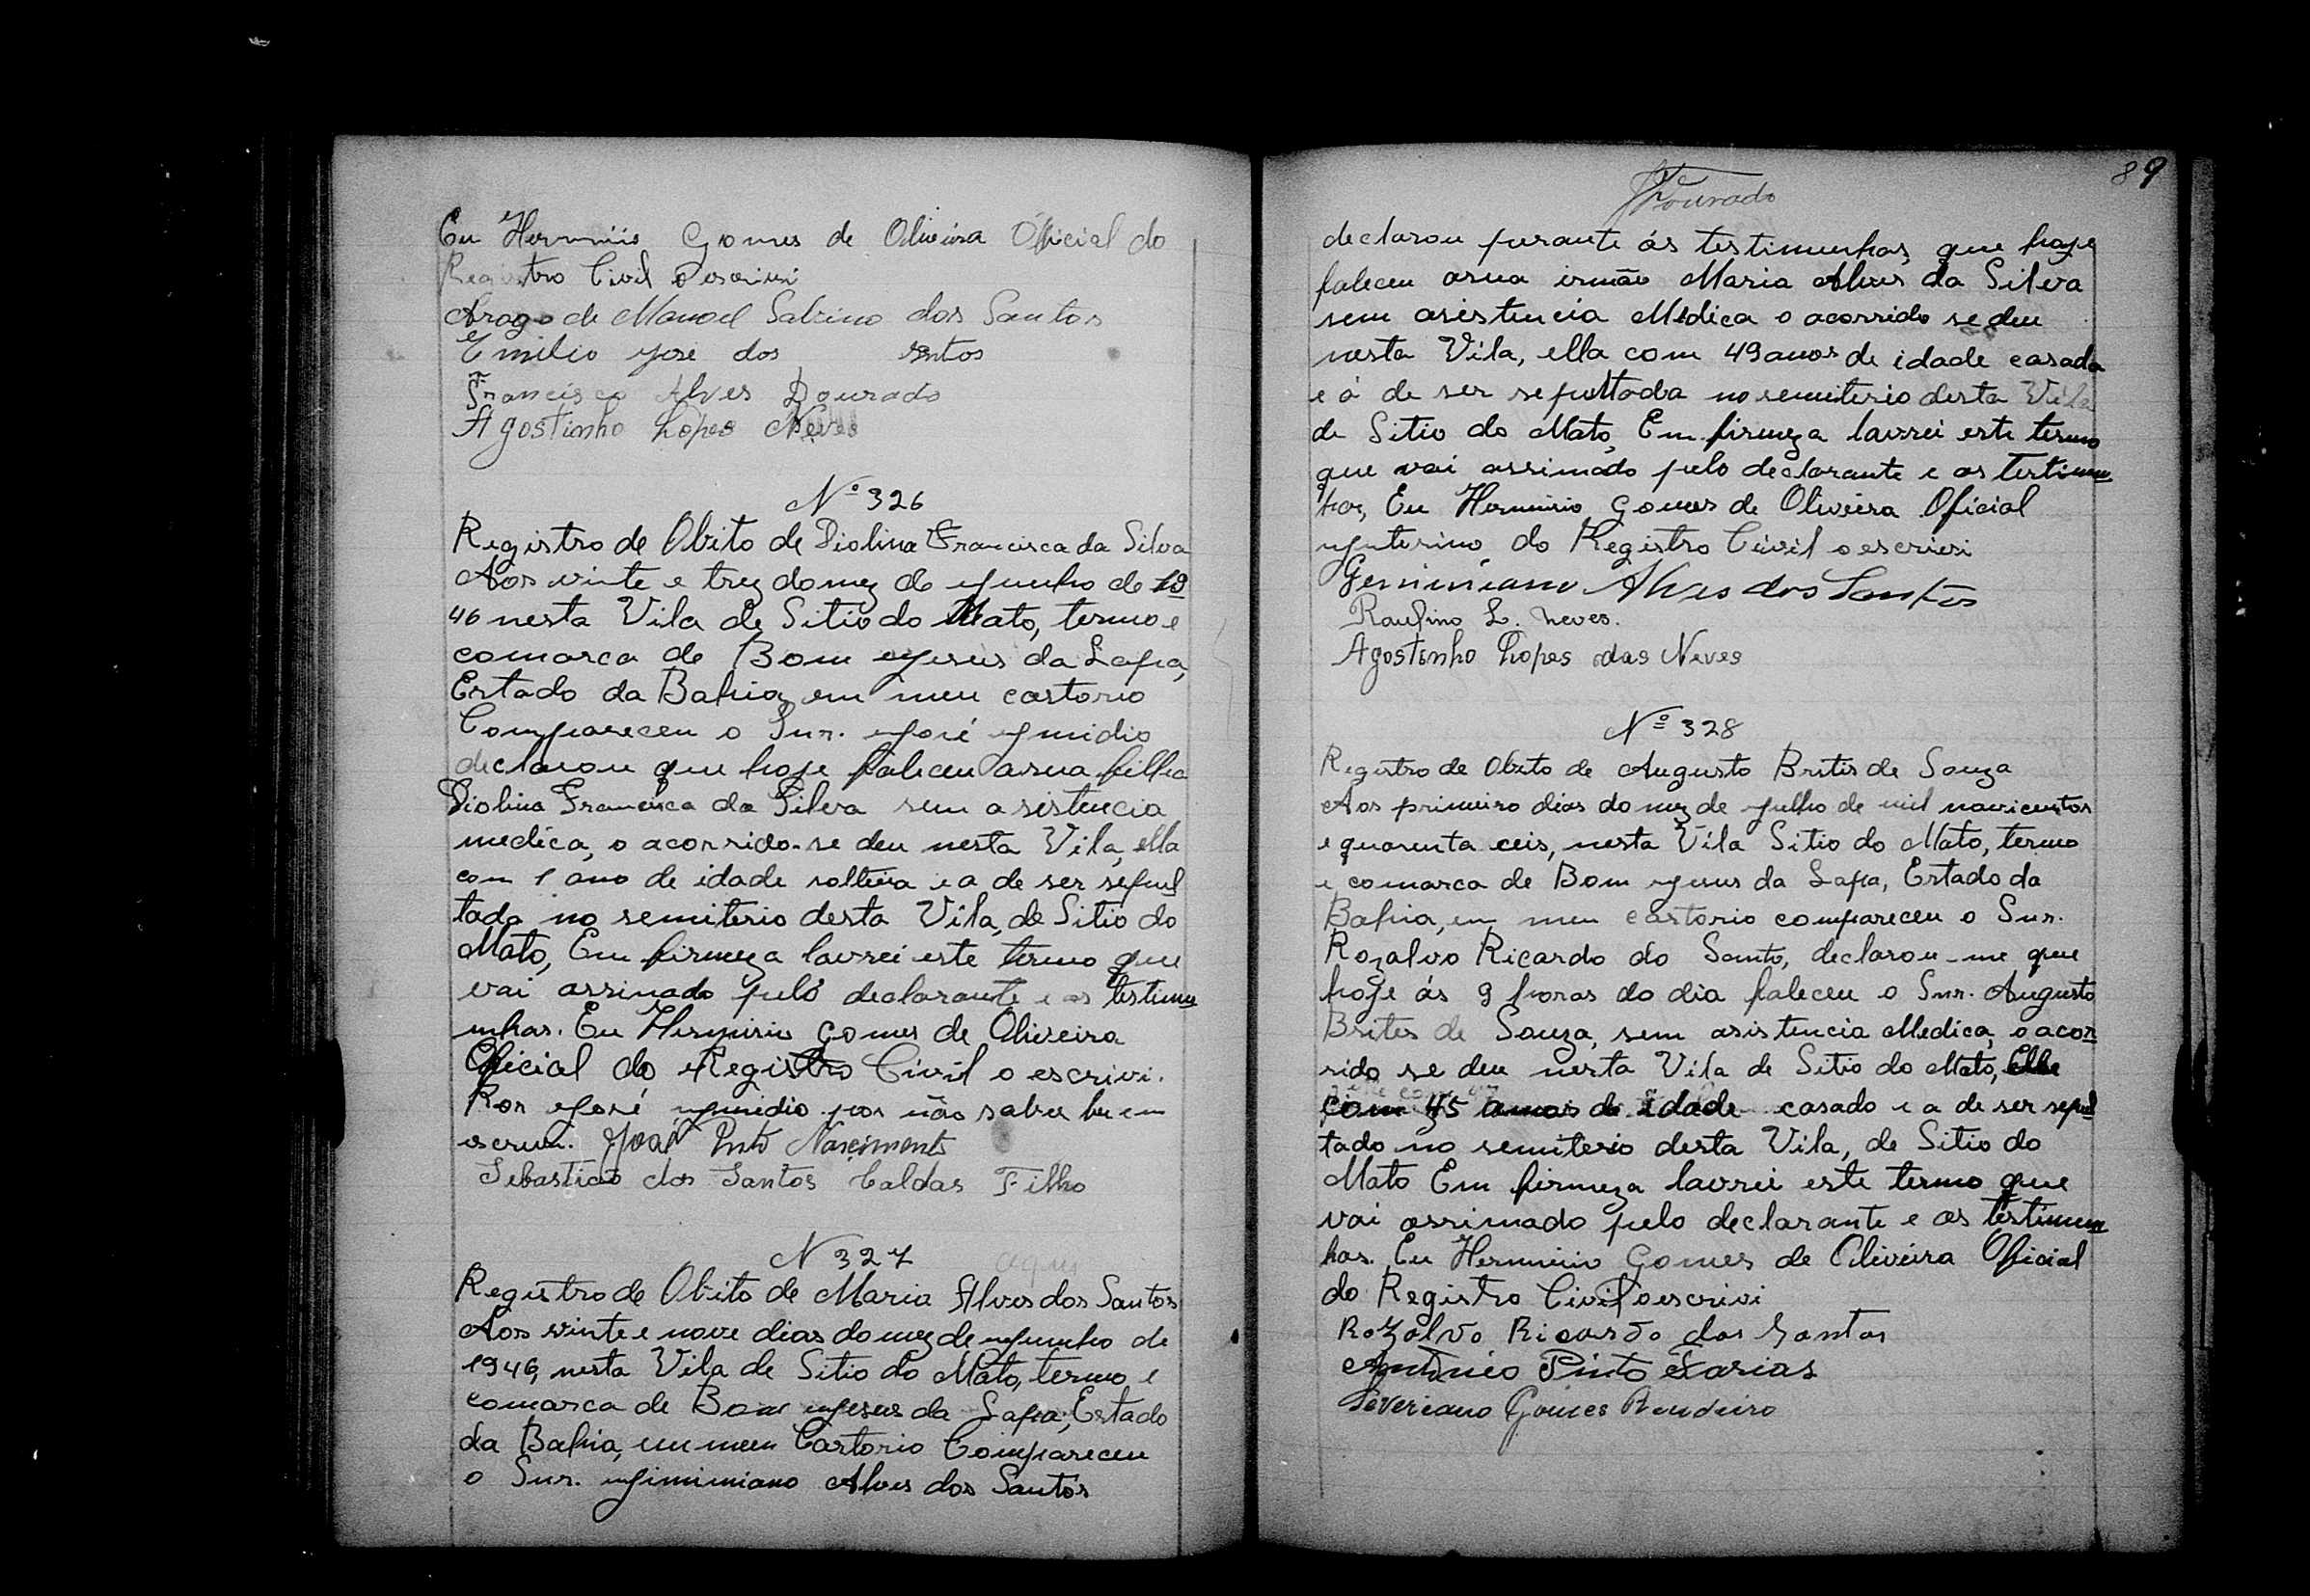 Eu Herminio Gomes de Oliveira Oficial do
Registro Civil o escrivi
Arogo de Manoel Sabino dos Santos
Emilio José dos Santos
Francisco Alves Dourado
Agostinho Lopes Neves
Nº 326
Registro de Obito de Diolina Francisca da Silva
Aos vinte e trez do mez de junho de 19
46 nesta Vila de Sitio do Mato, termo e
comarca de Bom Jesus da Lapa,
Estado da Bahia, em meu castorio
Compareceu o Snr. José
declarou que hoje faleceu asua filha
Diolina Francisca da Silva sem asistencia
medica, o acorrido se deu nesta Vila, ella
com 1 ano de idade solteira e a de ser sepul
tada no semiterio desta Vila, de Sitio do
Mato, Em firmeza lavrei este termo que
vai assinado pelo declarante e as testimu
nhas. Eu Herminio Gomes de Oliveira
Oficial do Registro Civil o escrivi.
Ror José por não saber ler em
escrever. José Pinto Nascimento
Sebastião dos Santos Caldas Filho
N 327
Registro de Obito de Maria Alves dos Santos
Aos vinte e nove dias do mez de junho de
1946, nesta Vila de Sitio do Mato, termo e
comarca de Bom Jesus da Lapa, Estado
da Bahia, em meu Castorio Compareceu
o Snr. Jiminiano Alves dos Santos
89
Dourado
declarou perante ás testimunhas, que hoje
faleceu asua irmão Maria Alves da Silva
sem asistencia Medica o acorrido se deu
nesta Vila, ella com 49 anos de idade casada
e á de ser sepultada no semiterio desta Vila
de Sitio do Mato, Em firmeza lavrei este termo
que vai assinado pelo declarante e as testimu
has, Eu Herminio Gomes de Oliveira Oficial
jnterino do Registro Civil o escrivi
Geminiano Alves dos Santos
Raulino L. Neves.
Agostinho Lopes das Neves
Nº 328
Registro de Obito de Augusto Britis de Souza
Aos primeiro dias do mez de julho de mil novicentos
e quarenta ceis, nesta Vila Sitio do Mato, termo
e comarca de Bom Jesus da Lapa, Estado da
Bahia, em meu castorio compareceu o Snr.
Rozalvo Ricardo do Santo, declarou-me que
hoje ás 9 horas do dia faleceu o Snr. Augusto
Brites de Souza, sem asistencia Medica, o acor
rido se deu nesta Vila de Sitio do Mato, Elle
com 45 anos de idade casado e a de ser sepul
tado no semiterio desta Vila, de Sitio do
Mato Em firmeza lavrei este termo que
vai assinado pelo declarante e as testimun
has. Eu Herminio Gomes de Oliveira Oficial
do Registro Civil o escrivi
Rozalvo Ricardo dos Santos
Antonio Pinto Farias
Severiano Gomes Bandeira